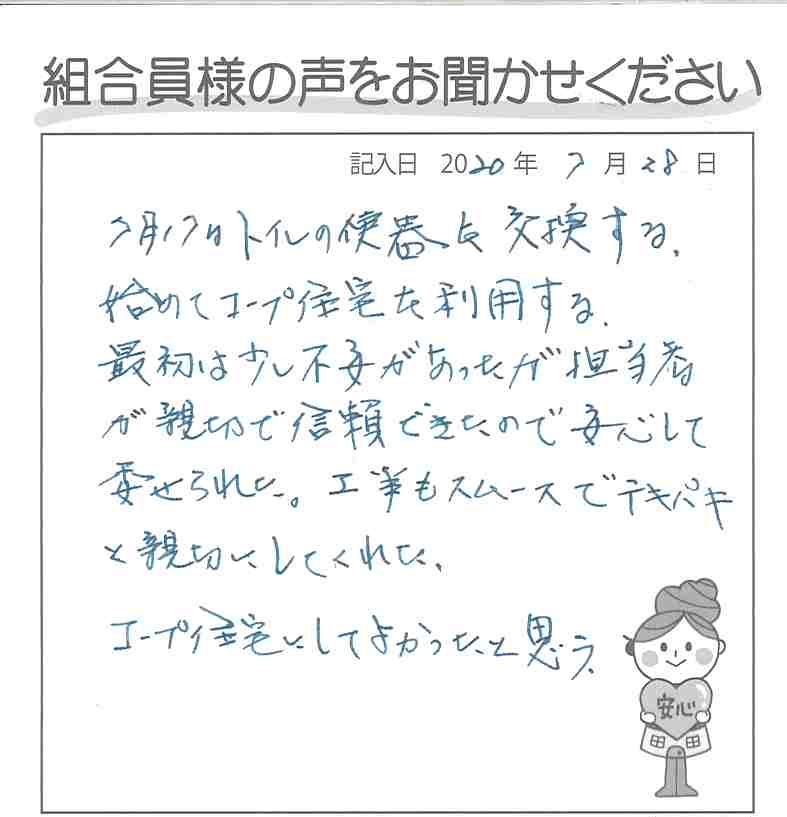 組合員様の声をお聞かせください
記入日 2020年 7月28日
7月17日トイレの便器を交換する。
始めてコープ住宅を利用する。
最初は少し不安があったが担当者
が親切で信頼できたので安心して
委せられた。工事もスムースでテキパキ
と親切にしてくれた。
コープ住宅にしてよかったと思う。
安心